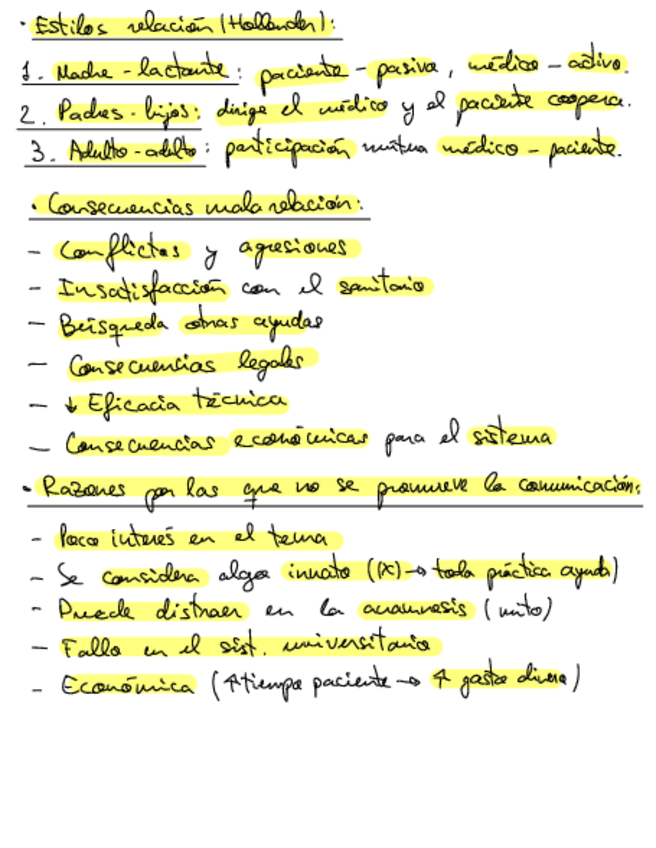 · Estilos relación (Hollender):
1. Madre - lactante: paciente - pasiva, médico - activo.
2. Padres - hijos: dirige el médico y el paciente coopera.
3. Adulto - adulto: participación mutua médico - paciente.
· Consecuencias mala relación:
- Conflictos y agresiones
- Insatisfacción con el sanitario
- Búsqueda otras ayudas
- Consecuencias legales
- ↓ Eficacia técnica
- Consecuencias económicas para el sistema
· Razones por las que no se promueve la comunicación:
- Poco interés en el tema
- Se considera algo innato ((X)→ toda práctica ayuda)
- Puede distraer en la anamnesis (mito)
- Fallo en el sist. universitario
- Económica (↑tiempo paciente → ↑ gasto dinero)